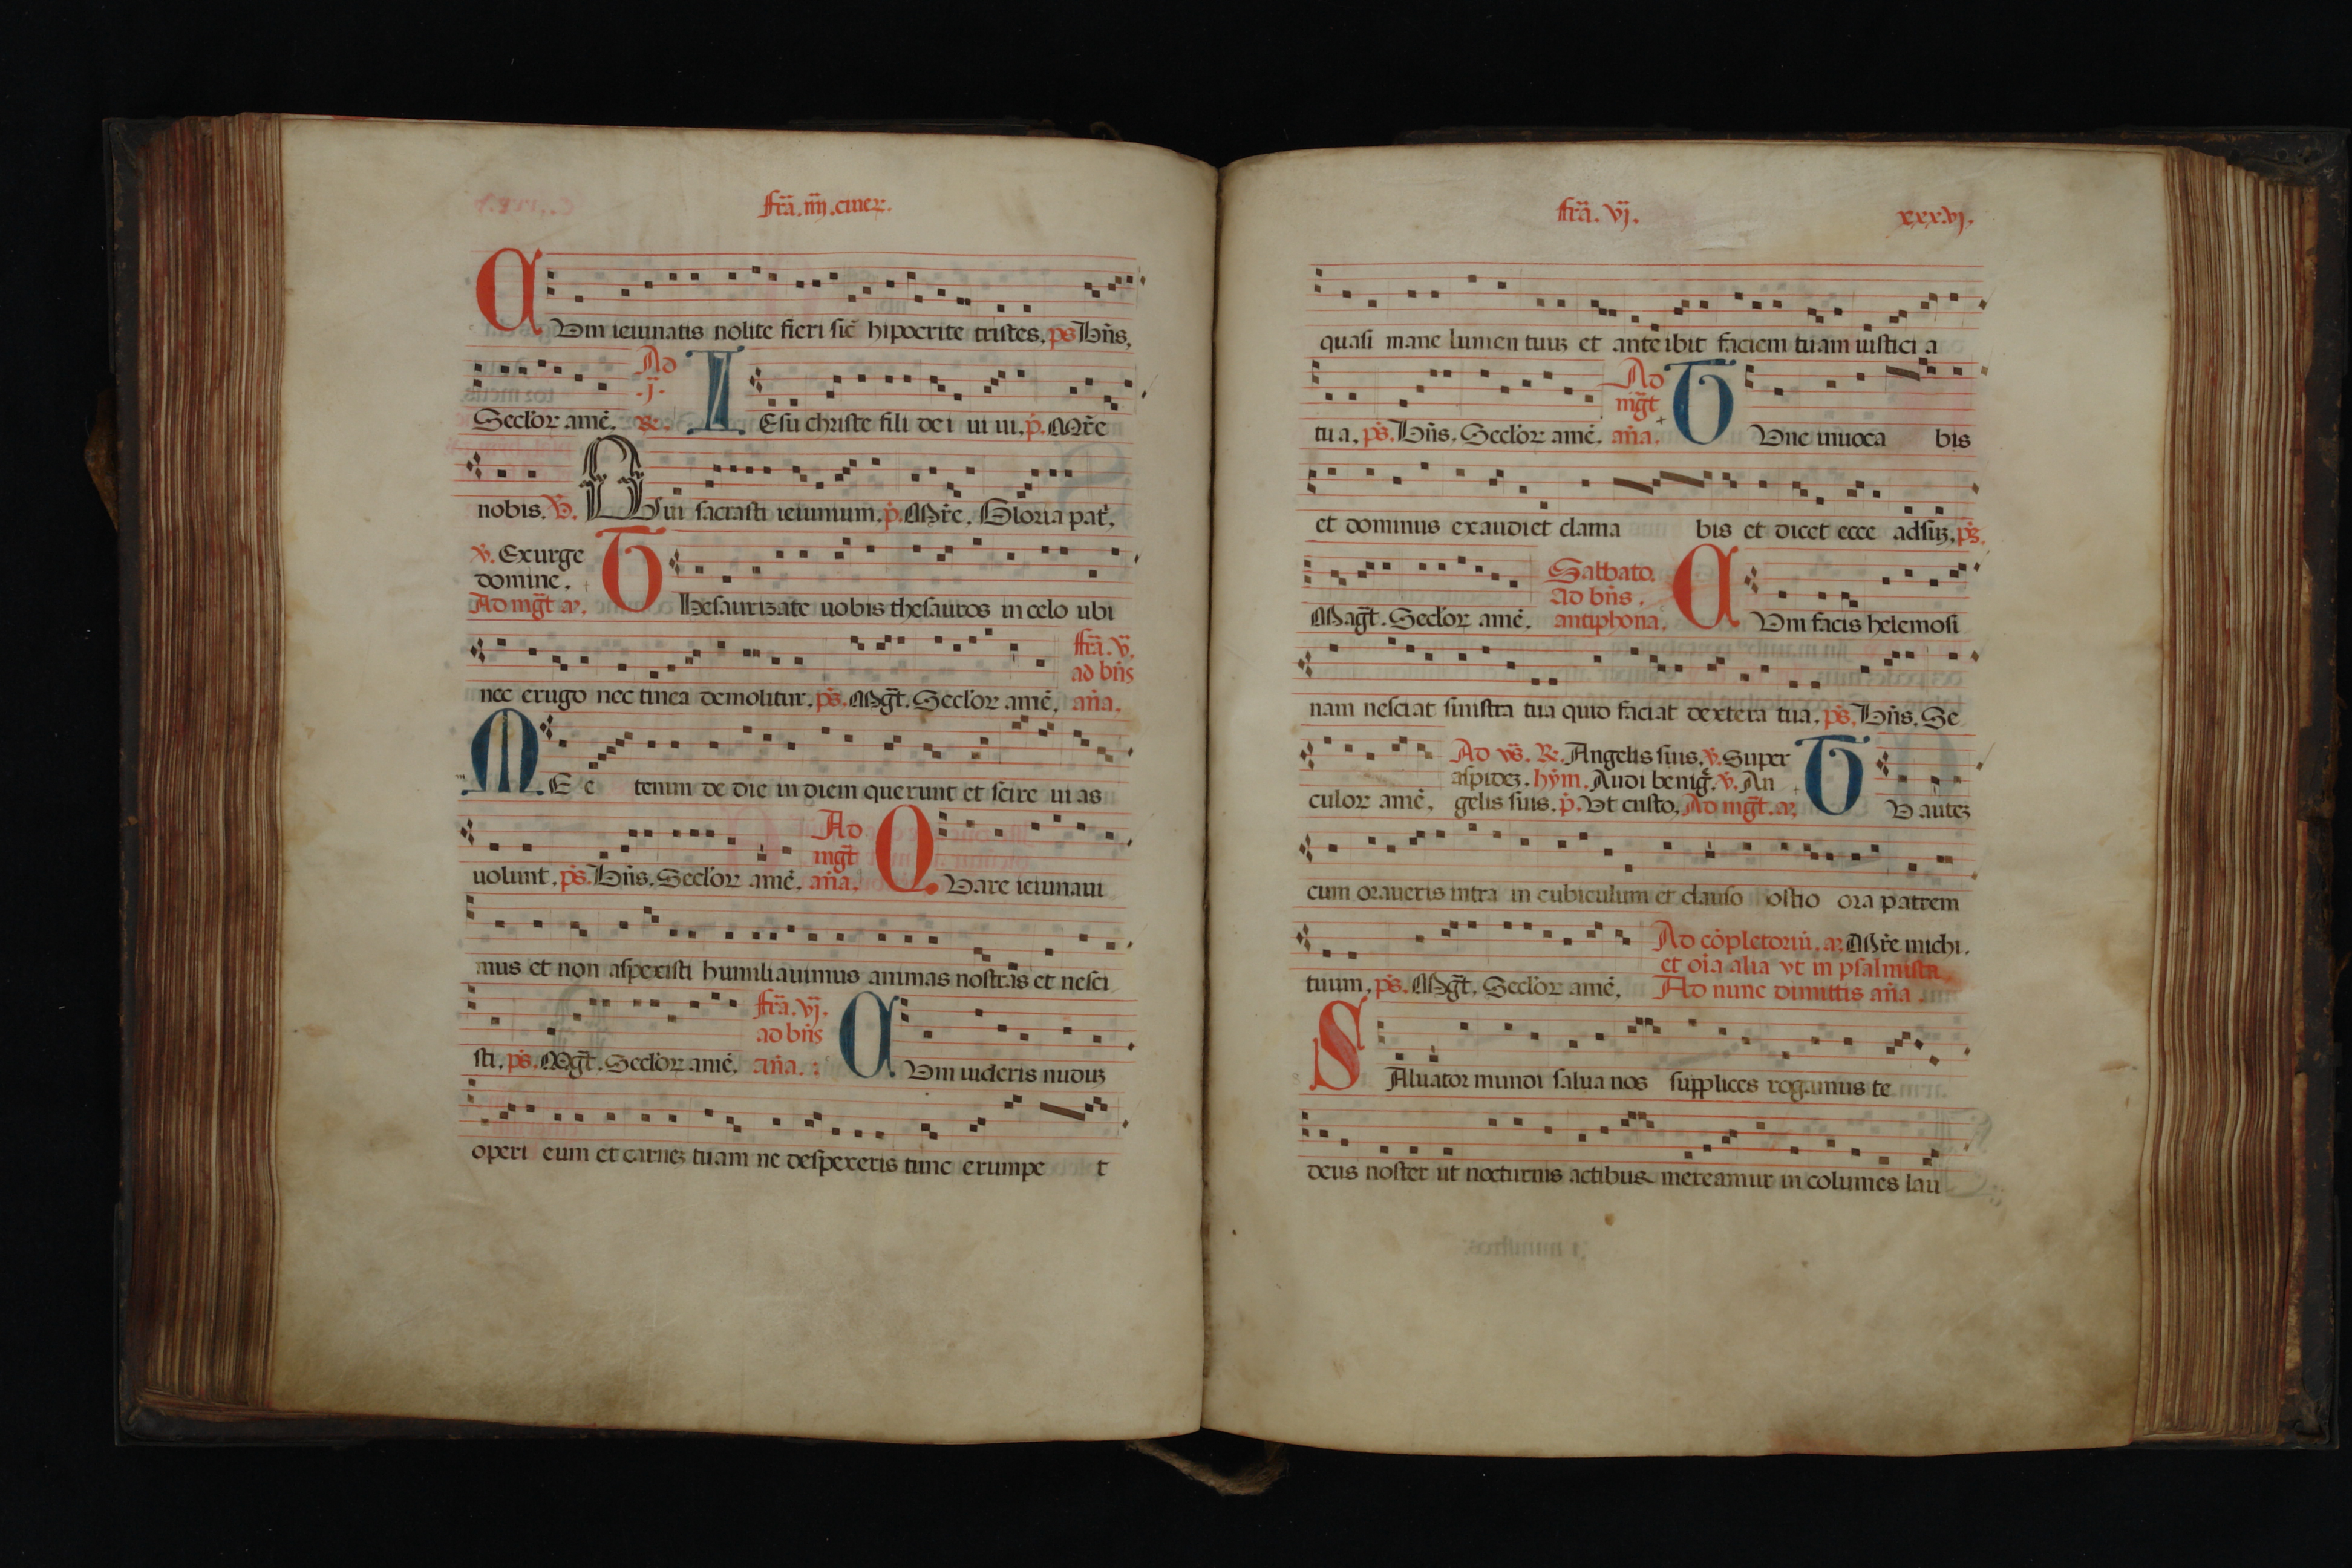 fr̄a. iiij. ciner.
CVm ieiunatis nolite fieri sic̄ hipocrite tristes. ps Bn̄s.
Secl'or amē. Ad .j. R.
IEsu christe fili dei ui ui. p̄. Mr̄e
nobis. V̄. Qui sacrasti ieiunium. p̄. Mr̄e. Gloria pat̄.
v̄. Exurge
domine.
Ad mḡt a.
THesaurizate uobis thesauros in celo ubi
nec erugo nec tinea demolitur. ps̄. Mḡt. Secl'or amē.
fr̄a. v̄.
ad bn̄s
an̄a.
ME e tenim de die in diem querunt et scire uias
uolunt. ps̄. Bn̄s. Secl'or amē.
Ad
mḡt
an̄a.
QVare ieiunaui
mus et non aspexisti humiliauimus animas nostras et nesci
sti. ps̄. Mḡt. Secl'or amē.
fr̄a. vj.
ad bn̄s
an̄a.
CVm uideris nuduz
operi eum et carnez tuam ne despexeris tunc erumpe t
fr̄a. vj.
xxxvj.
quasi mane lumen tuuz et ante ibit faciem tuam iusticia
tua. ps̄. Bn̄s. Secl'or amē.
Ad
mḡt
an̄a.
TVnc inuoca bis
et dominus exaudiet clama bis et dicet ecce adsuz. ps̄.
Maḡt. Secl'or amē.
Sabbato.
ad bn̄s.
antiphona.
CVm facis helemosi
nam nesciat sinistra tua quid faciat dextera tua. ps̄. Bn̄s. Se
culor amē.
Ad vs̄. R. Angelis suis. v̄. Super
aspidez. hȳm. Audi beniḡ. v̄. An
gelis suis. p̄. Vt custo. Ad mḡt. a.
TV autez
cum oraueris intra in cubiculum et clauso ostio ora patrem
tuum. ps̄. Mḡt. Secl'or amē.
Ad cōpletoriū. a. Mr̄e michi.
et oīa alia vt in psalmista.
Ad nunc dimittis an̄a.
SAluator mundi salua nos supplices rogamus te
deus noster ut nocturnis actibus mereamur in columes lau